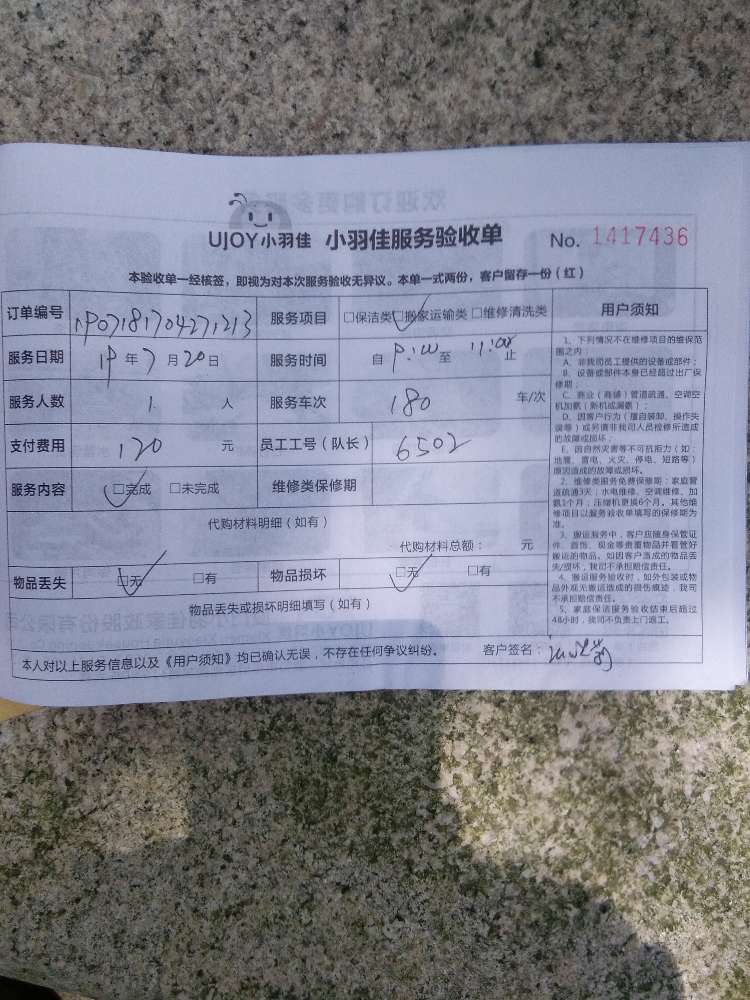 UJOY小羽佳 小羽佳服务验收单 No. 1417436
本验收单一经核签，即视为对本次服务验收无异议。本单一式两份，客户留存一份（红）
订单编号 190718170427121​3 服务项目 □保洁类 □搬家运输类 □维修清洗类
服务日期 19年7月20日 服务时间 自 9:00 至 11:00 止
服务人数 1 人 服务车次 180 车/次
支付费用 120 元 员工工号（队长） 6502
服务内容 □完成 □未完成 维修类保修期
代购材料明细（如有）
代购材料总额： 元
物品丢失 □无 □有 物品损坏 □无 □有
物品丢失或损坏明细填写（如有）
本人对以上服务信息以及《用户须知》均已确认无误，不存在任何争议纠纷。 客户签名：
用户须知
1、下列情况不在维修项目的维保范
围之内：
A、非我司员工提供的设备或部件；
B、设备或部件本身已经超过出厂保
修期；
C、商业（商铺）管道疏通、空调空
机加氟（新机或漏氟）；
D、因客户行为（擅自装卸、操作失
误等）或另请非我司人员检修所造成
的故障或损坏；
E、因自然灾害等不可抗拒力（如：
地震、雷电、火灾、停电、短路等）
原因造成的故障或损坏。
2、维修类服务免费保修期：家庭管
道疏通3天；水电维修、空调维修、加
氟3个月；压缩机更换6个月。其他维
修项目以服务验收单填写的保修期为
准。
3、搬运服务中，客户应随身保管证
件、首饰、现金等贵重物品并看管好
搬运的物品。如因客户造成的物品丢
失/损坏，我司不承担赔偿责任。
4、搬运服务验收时，如外包装或物
品外观无搬运造成的损伤痕迹，我司
不承担赔偿责任。
5、家庭保洁服务验收结束后超过
48小时，我司不负责上门返工。